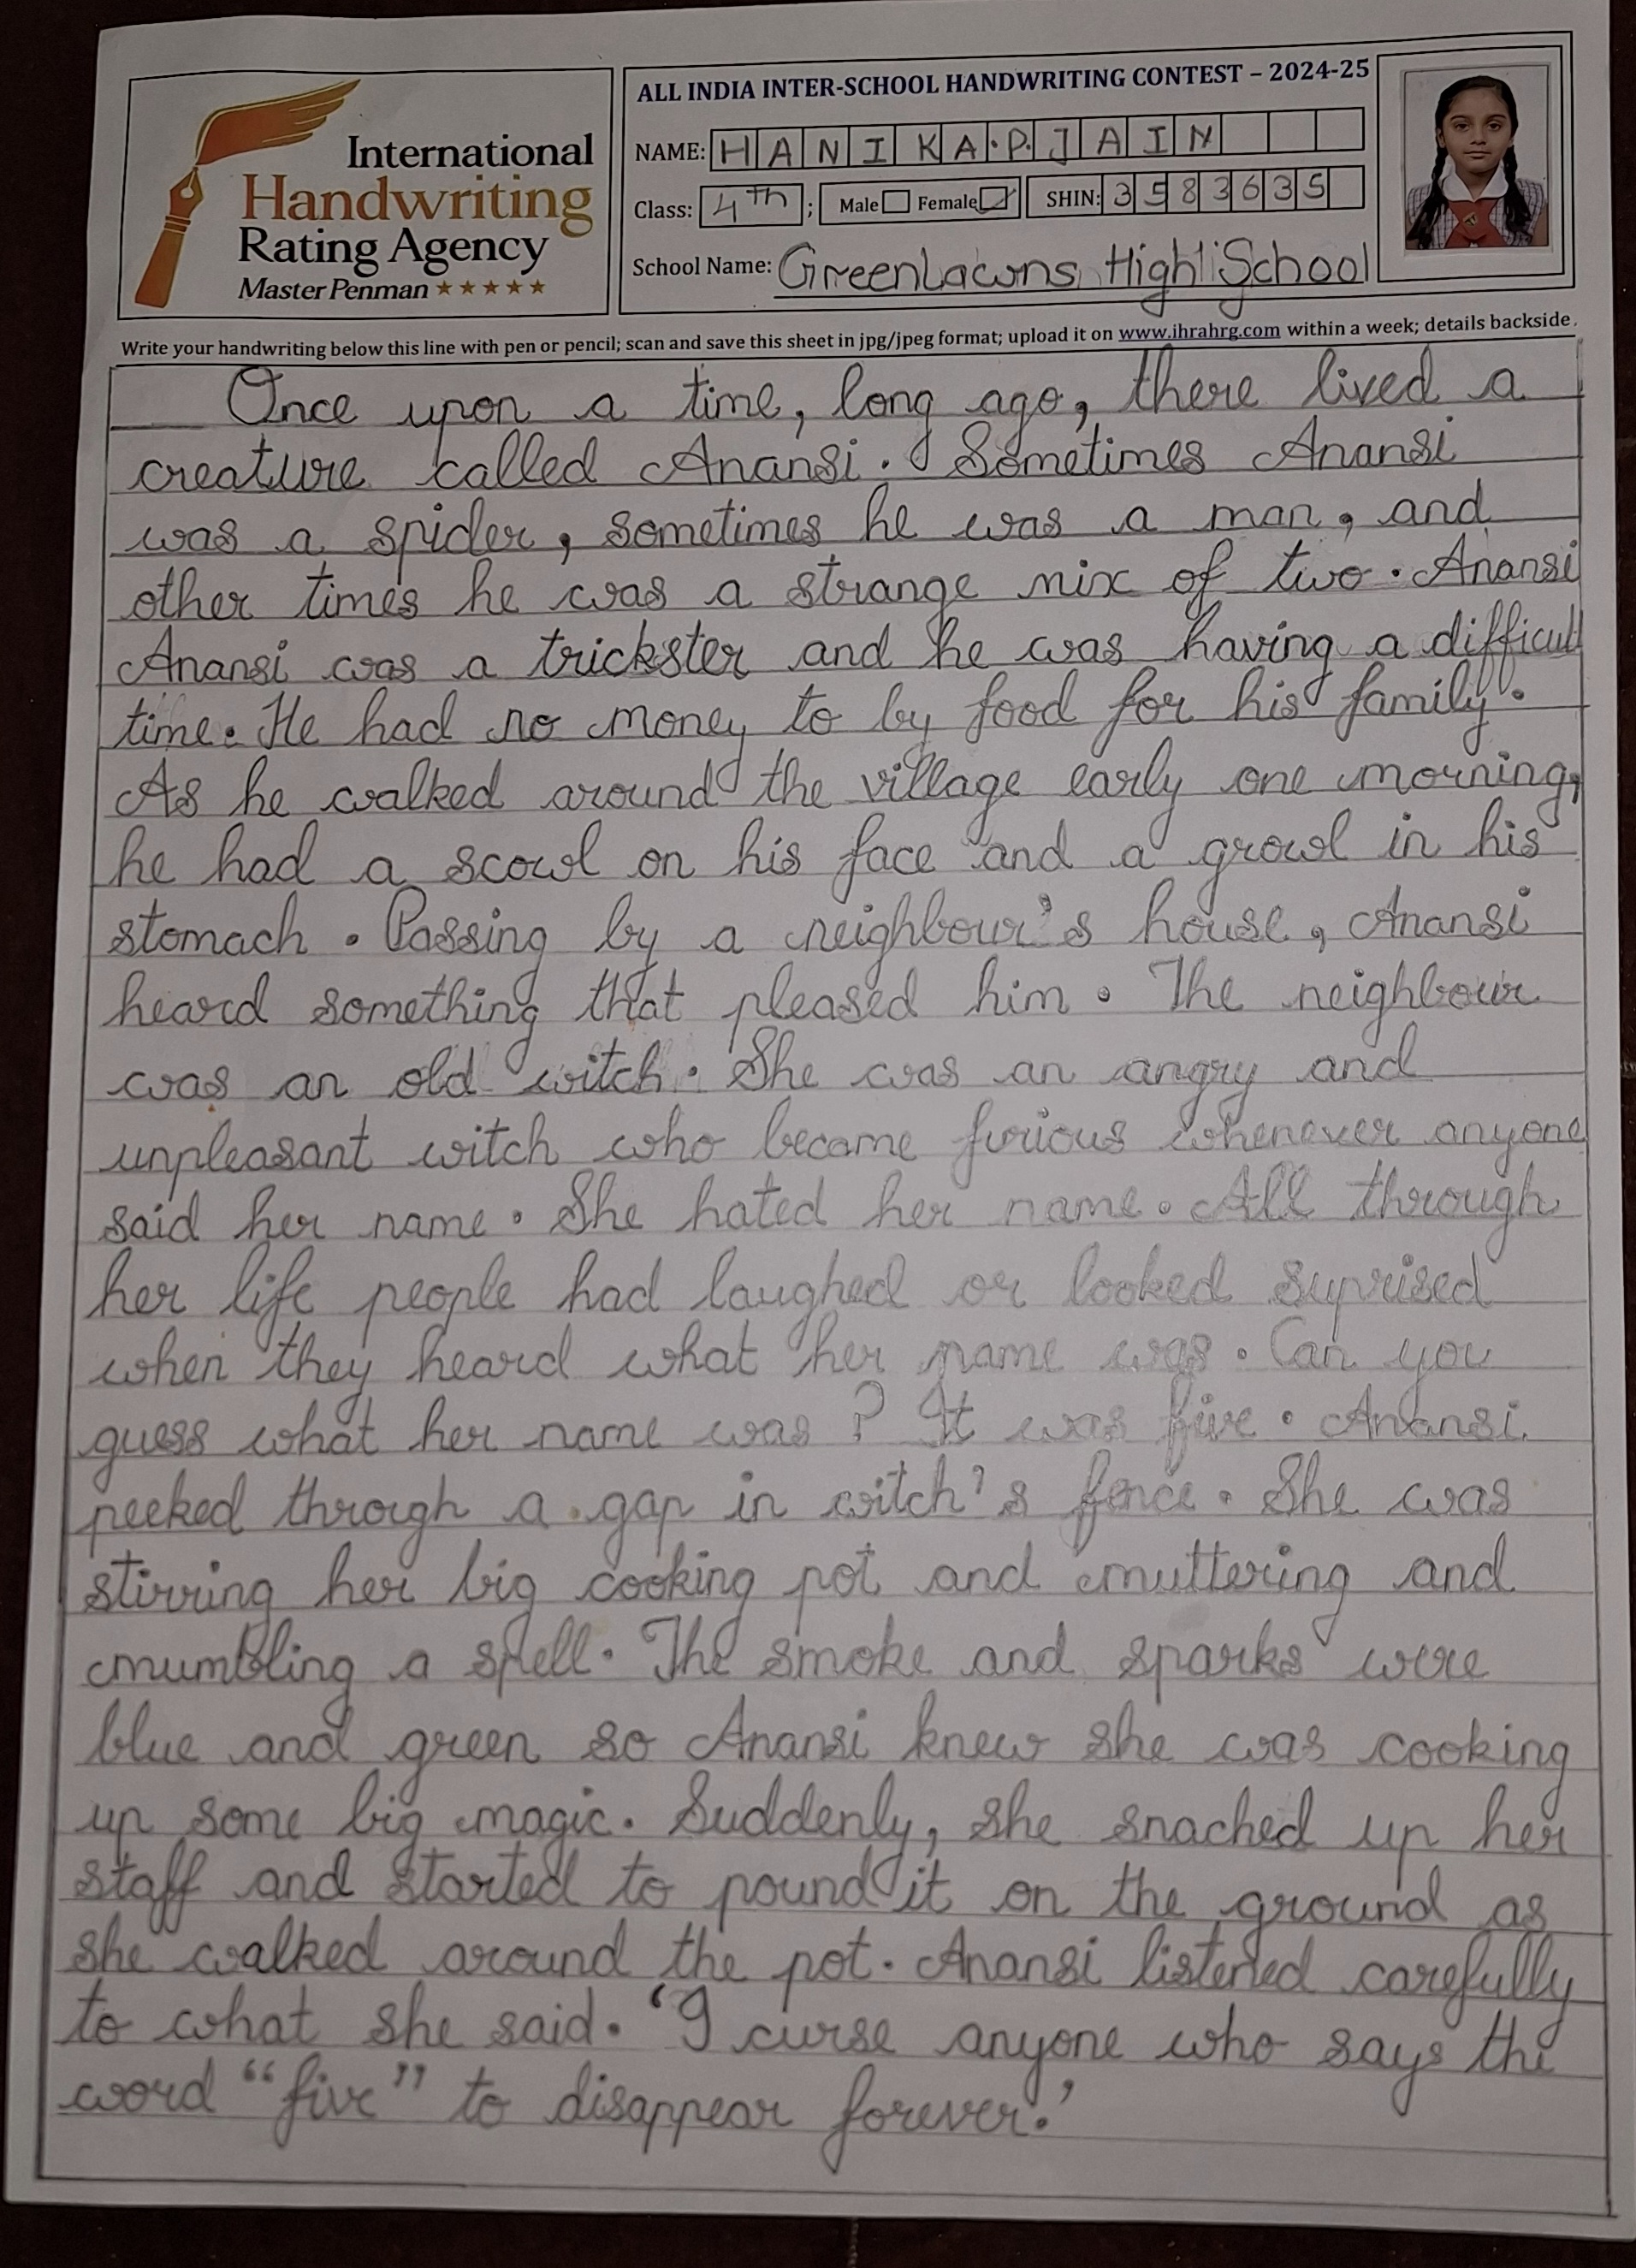 International
Handwriting
Rating Agency
Master Penman ★★★★★
ALL INDIA INTER-SCHOOL HANDWRITING CONTEST – 2024-25
NAME: HANIKA.P.JAIN
Class: 4th ; Male Female SHIN: 3583635
School Name: GreenLawns High School
Write your handwriting below this line with pen or pencil; scan and save this sheet in jpg/jpeg format; upload it on www.ihrahrg.com within a week; details backside.
Once upon a time, long ago, there lived a
creature called Anansi. Sometimes Anansi
was a spider, sometimes he was a man, and
other times he was a strange mix of two. Anansi
Anansi was a trickster and he was having a difficult
time. He had no money to by food for his family.
As he walked around the village early one morning,
he had a scowl on his face and a growl in his
stomach. Passing by a neighbour's house, Anansi
heard something that pleased him. The neighbour
was an old witch. She was an angry and
unpleasant witch who became furious whenever anyone
said her name. She hated her name. All through
her life people had laughed or looked suprised
when they heard what her name was. Can you
guess what her name was? It was five. Anansi
peeked through a gap in witch's fence. She was
stirring her big cooking pot and muttering and
mumbling a spell. The smoke and sparks were
blue and green so Anansi knew she was cooking
up some big magic. Suddenly, she snached up her
staff and started to pound it on the ground as
she walked around the pot. Anansi listened carefully
to what she said. 'I curse anyone who says the
word "five" to disappear forever.'